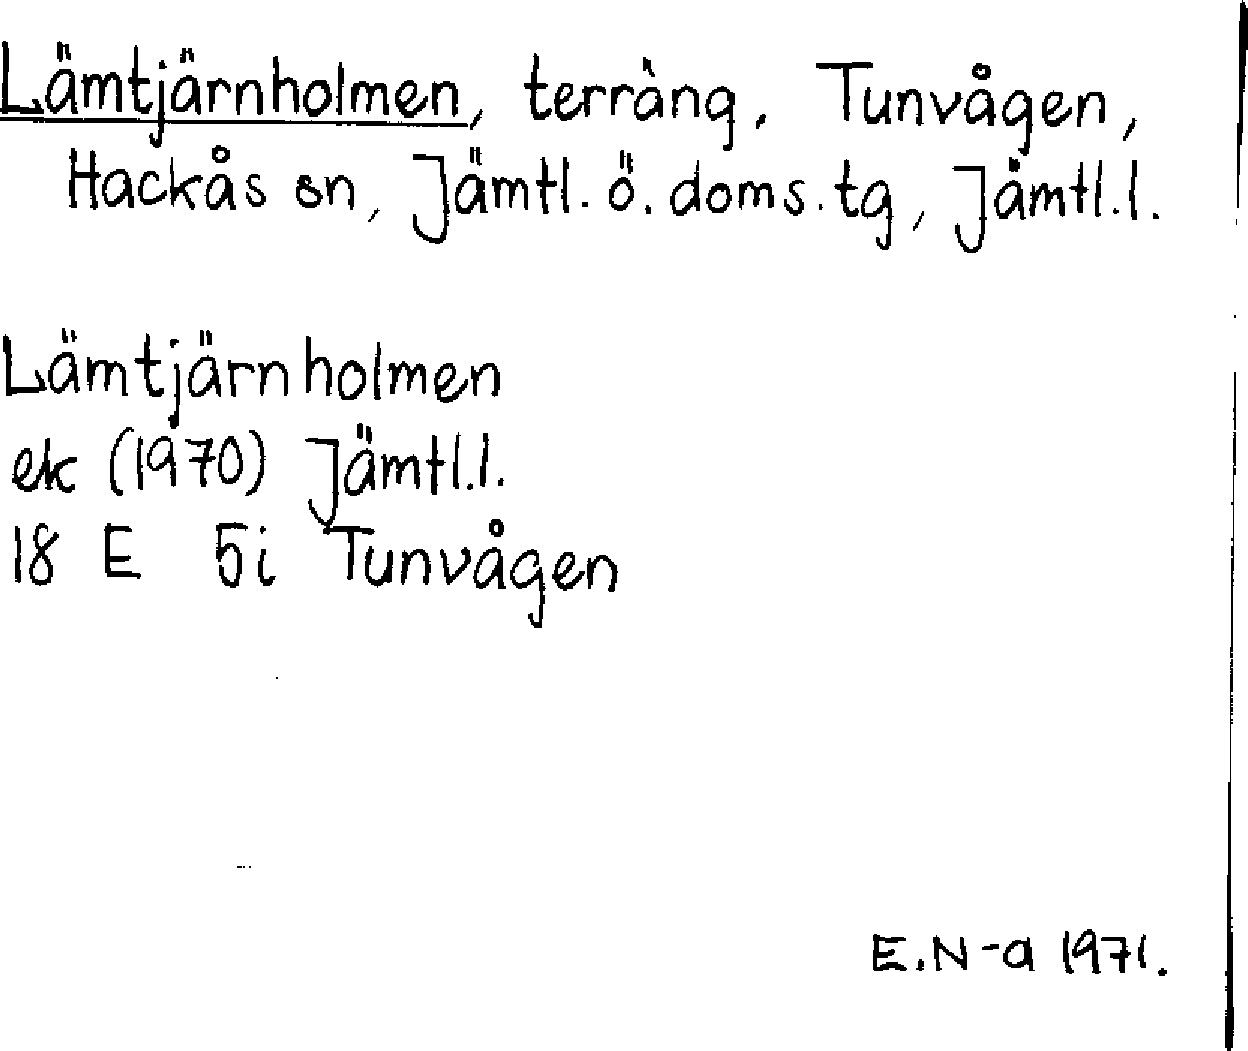 Lämtjärnholmen, terräng, Tunvågen,
Hackås sn, Jämtl. ö. doms. tg, Jämtl. l.
Lämtjärnholmen
ek (1970) Jämtl. l.
18 E 5i Tunvågen
E. N-a 1971.